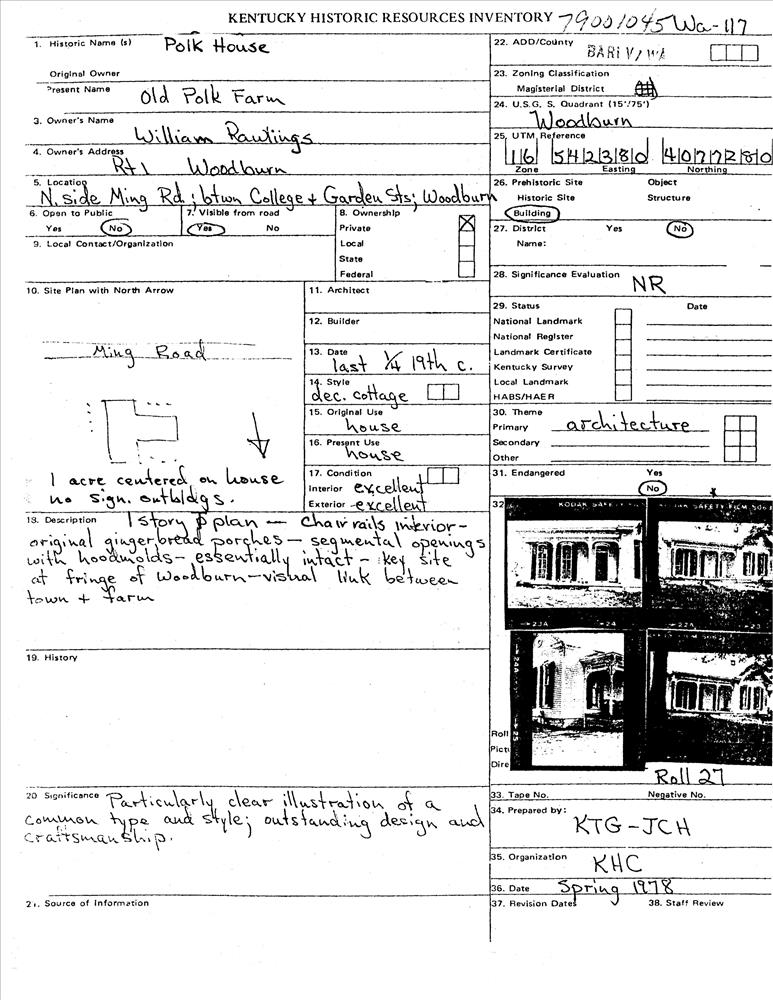 KENTUCKY HISTORIC RESOURCES INVENTORY 79001045 Wa-117
1. Historic Name (s) Polk House
Original Owner
Present Name Old Polk Farm
3. Owner's Name William Rawlings
4. Owner's Address Rt 1 Woodburn
5. Location N. side Ming Rd; btwn College + Garden Sts; Woodburn
6. Open to Public
Yes No
7. Visible from road
Yes No
8. Ownership
Private X
Local
State
Federal
9. Local Contact/Organization
10. Site Plan with North Arrow
Ming Road
1 acre centered on house
no sign. outbldgs.
11. Architect
12. Builder
13. Date last 1/4 19th c.
14. Style
dec. cottage
15. Original Use
house
16. Present Use
house
17. Condition
Interior excellent
Exterior excellent
18. Description 1 story plan — Chair rails interior -
original gingerbread porches — segmental openings
with hoodmolds — essentially intact — key site
at fringe of Woodburn — visual link between
town + farm
19. History
20 Significance Particularly clear illustration of a
common type and style; outstanding design and
craftsmanship.
21. Source of Information
22. ADD/County
23. Zoning Classification
Magisterial District
24. U.S.G. S. Quadrant (15'/75')
Woodburn
25. UTM Reference
16 542380 4077280
Zone Easting Northing
26. Prehistoric Site Object
Historic Site Structure
Building
27. District Yes No
Name:
28. Significance Evaluation
NR
29. Status Date
National Landmark
National Register
Landmark Certificate
Kentucky Survey
Local Landmark
HABS/HAER
30. Theme
Primary architecture
Secondary
Other
31. Endangered Yes
No
32
KODAK SAFETY
SAFETY FILM 506
23A 24 22A 23
24A
25
22
Roll
Pictu
Dire
Roll 27
33. Tape No. Negative No.
34. Prepared by:
KTG-JCH
35. Organization KHC
36. Date Spring 1978
37. Revision Dates 38. Staff Review